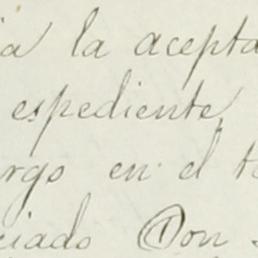 ia la acepta
espediente,
rgo en el t
ciado Don